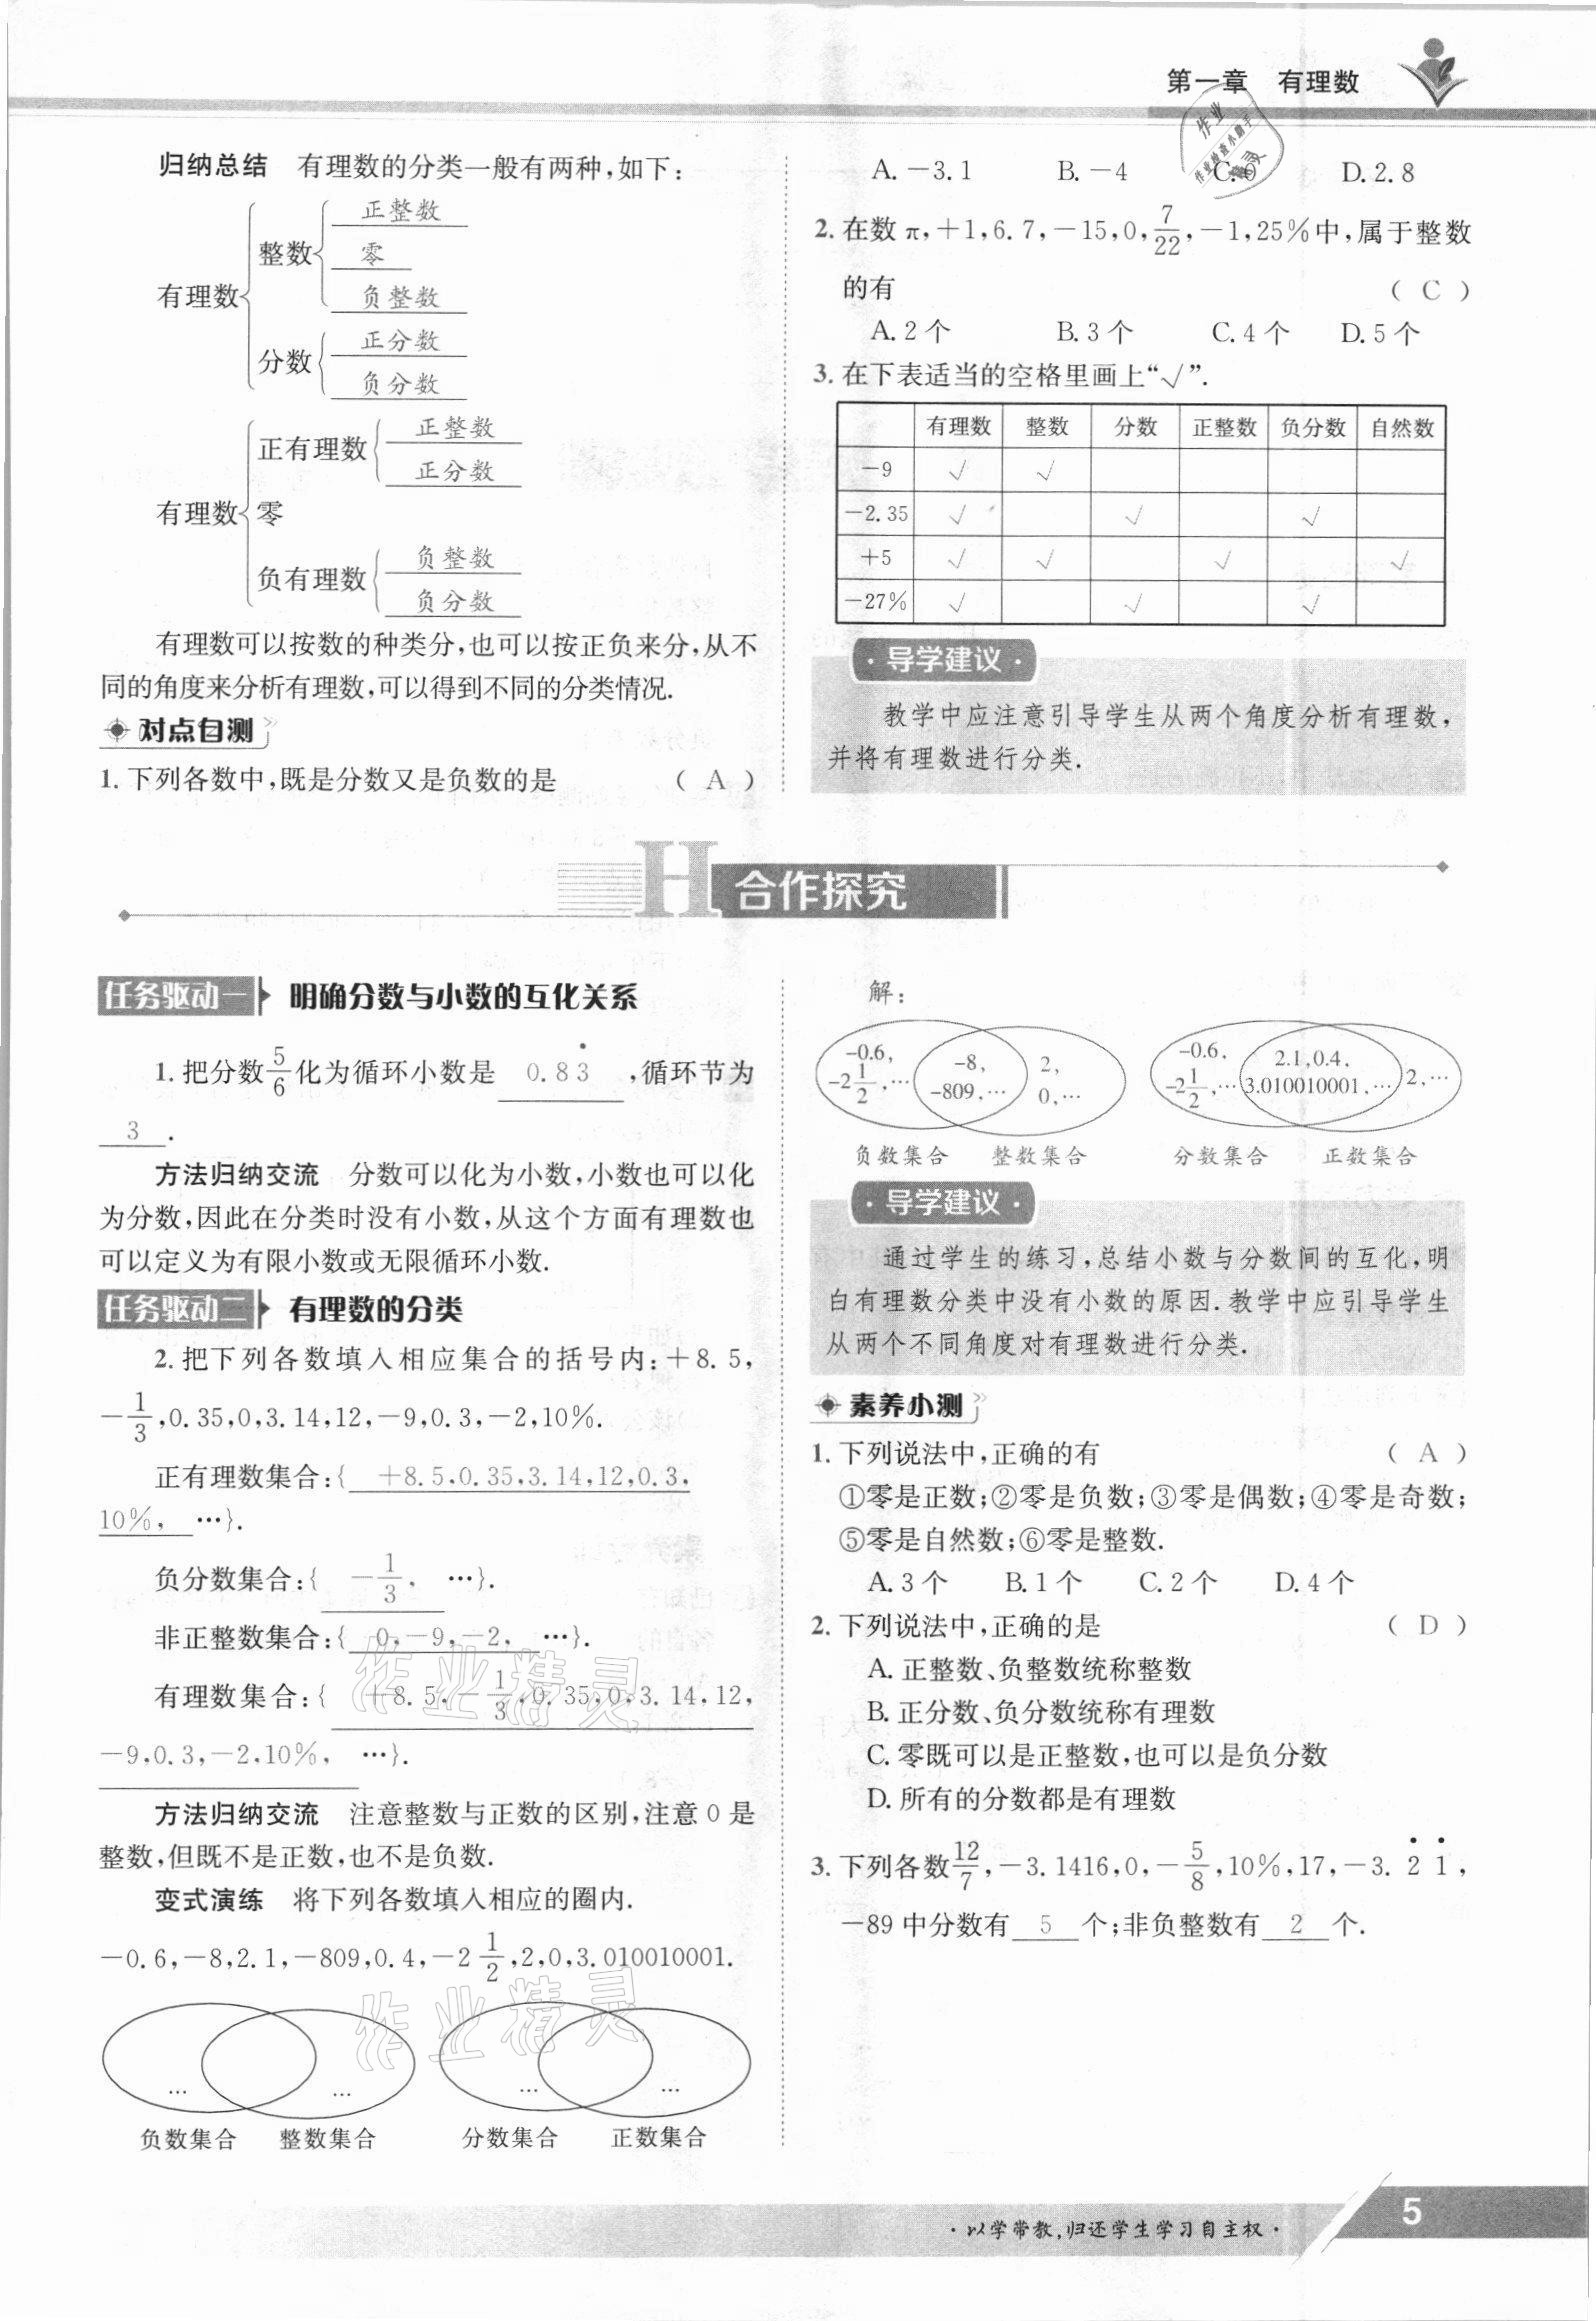 第一章 有理数
归纳总结 有理数的分类一般有两种,如下:
有理数
整数
正整数
零
负整数
分数
正分数
负分数
有理数
正有理数
正整数
正分数
零
负有理数
负整数
负分数
有理数可以按数的种类分,也可以按正负来分,从不
同的角度来分析有理数,可以得到不同的分类情况.
对点自测
1. 下列各数中,既是分数又是负数的是 ( A )
A. -3.1 B. -4 C. 0 D. 2.8
2. 在数 π,+1,6.7,-15,0,7/22,-1,25%中,属于整数
的有 ( C )
A. 2个 B. 3个 C. 4个 D. 5个
3. 在下表适当的空格里画上“√”.
有理数 整数 分数 正整数 负分数 自然数
-9 √ √
-2.35 √ √ √
+5 √ √ √ √
-27% √ √ √
·导学建议·
教学中应注意引导学生从两个角度分析有理数,
并将有理数进行分类.
H 合作探究
任务驱动一 明确分数与小数的互化关系
1. 把分数5/6化为循环小数是 0.83̇ ,循环节为
3 .
方法归纳交流 分数可以化为小数,小数也可以化
为分数,因此在分类时没有小数,从这个方面有理数也
可以定义为有限小数或无限循环小数.
任务驱动二 有理数的分类
2. 把下列各数填入相应集合的括号内:+8.5,
-1/3,0.35,0,3.14,12,-9,0.3,-2,10%.
正有理数集合:{ +8.5,0.35,3.14,12,0.3,
10%, …}.
负分数集合:{ -1/3, …}.
非正整数集合:{ 0,-9,-2, …}.
有理数集合:{ +8.5,-1/3,0.35,0,3.14,12,
-9,0.3,-2,10%, …}.
方法归纳交流 注意整数与正数的区别,注意 0 是
整数,但既不是正数,也不是负数.
变式演练 将下列各数填入相应的圈内.
-0.6,-8,2.1,-809,0.4,-2 1/2,2,0,3.010010001.
… … … …
负数集合 整数集合 分数集合 正数集合
解:
-0.6, -8, 2,
-2 1/2,… -809,… 0,…
负数集合 整数集合
-0.6, 2.1,0.4,
-2 1/2,… 3.010010001,… 2,…
分数集合 正数集合
·导学建议·
通过学生的练习,总结小数与分数间的互化,明
白有理数分类中没有小数的原因.教学中应引导学生
从两个不同角度对有理数进行分类.
素养小测
1. 下列说法中,正确的有 ( A )
①零是正数;②零是负数;③零是偶数;④零是奇数;
⑤零是自然数;⑥零是整数.
A. 3个 B. 1个 C. 2个 D. 4个
2. 下列说法中,正确的是 ( D )
A. 正整数、负整数统称整数
B. 正分数、负分数统称有理数
C. 零既可以是正整数,也可以是负分数
D. 所有的分数都是有理数
3. 下列各数12/7,-3.1416,0,-5/8,10%,17,-3.2̇1̇,
-89 中分数有 5 个;非负整数有 2 个.
作业精灵
作业精灵
·以学带教,归还学生学习自主权·
5